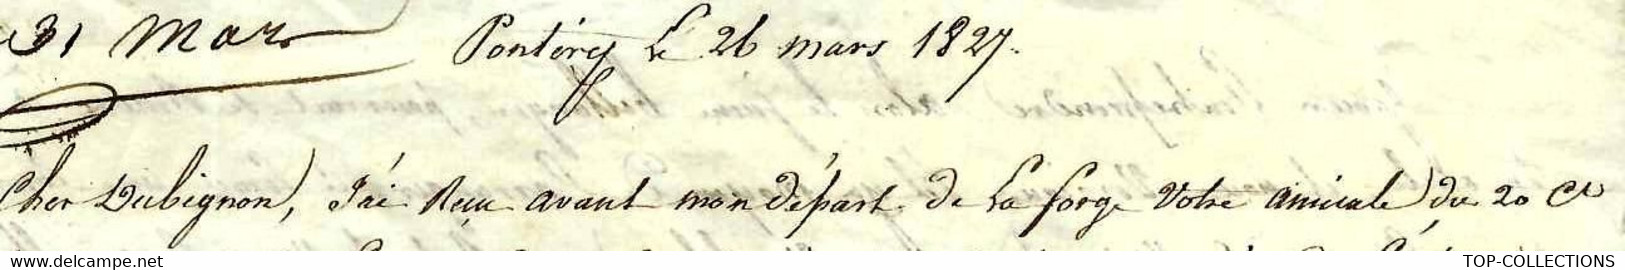 31 Mars
Pontivy Le 26 mars 1827.
Cher Dubignon, J'ai Reçu avant mon départ de La forge Votre amicale du 20 Ct
TOP-COLLECTIONS
delcampe.net